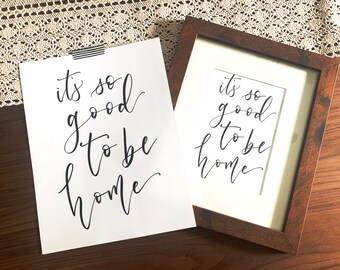 it's so
good
to be
home
it's so
good
to be
home